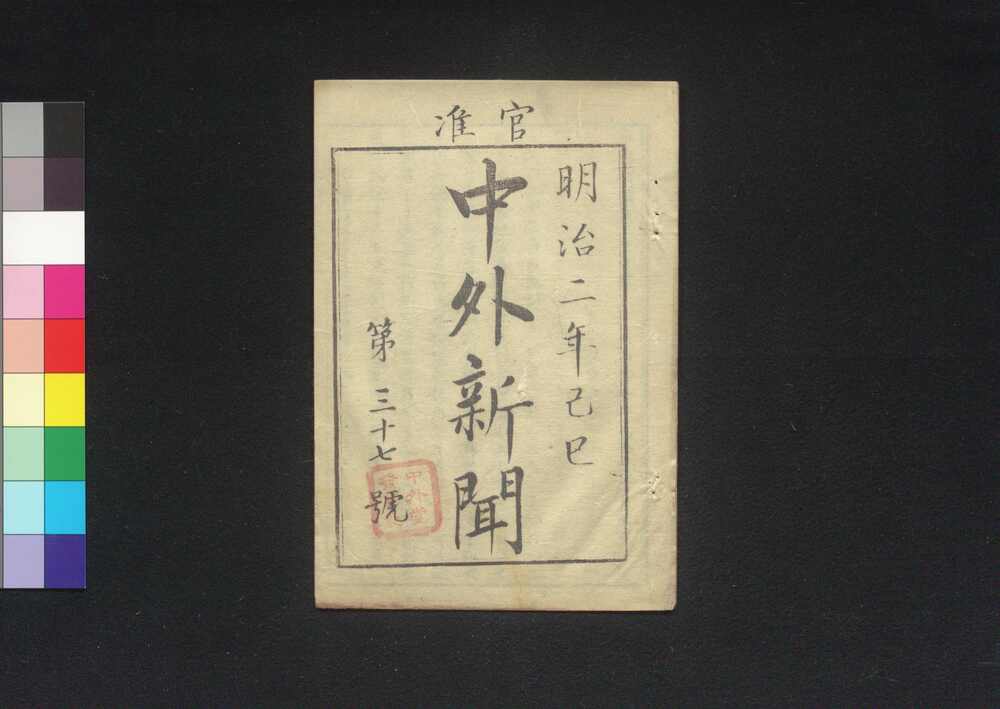 官准
明治二年己巳
中外新聞
第三十七號
中外堂